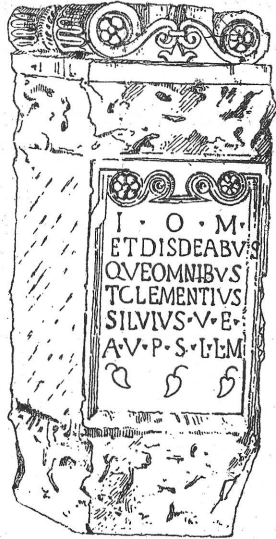 I · O · M ·
ETDISDEABVS
QVEOMNIBVS
TCLEMENTIVS
SILVIVS · V · E ·
A · V · P · S · L · L · M